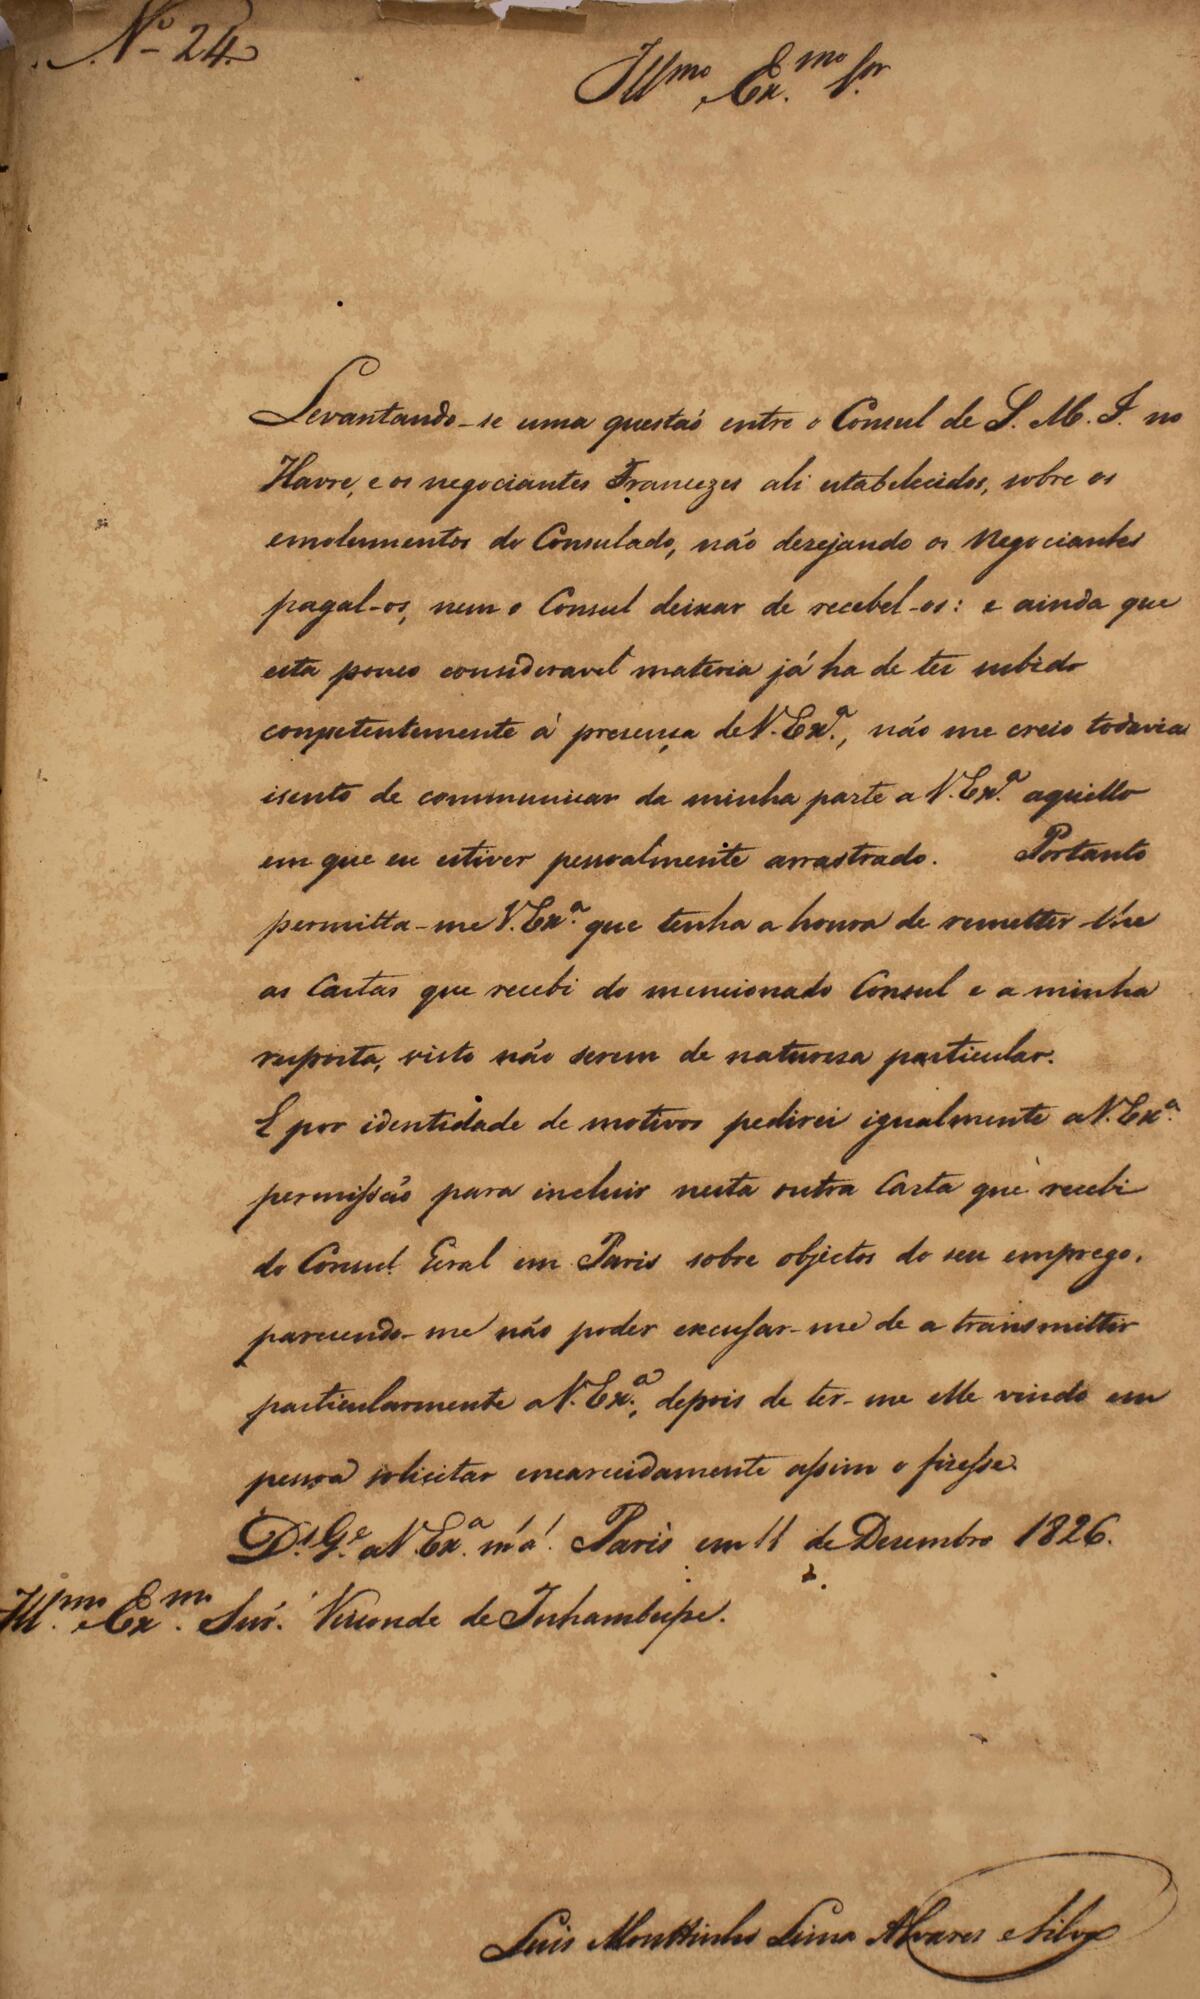 Nº 24.
Illmo e Ex.mo Snr
Levantando-se uma questaõ entre o Consul de S. M. I. no
Havre, e os negociantes Francezes ali estabelecidos, sobre os
emolumentos do Consulado, não dezejando os Negociantes
pagal-os, nem o Consul deixar de recebel-os: e ainda que
esta pouco consideravel materia já ha de ter subido
competentemente á presença de V. Ex.ª, não me creio todavia
isento de communicar da minha parte a V. Ex.ª aquillo
em que eu estiver pessoalmente arrastrado. Portanto
permitta-me V. Ex.ª que tenha a honra de remetter-lhe
as Cartas que recebi do mencionado Consul e a minha
resposta, visto não serem de natureza particular.
E por identidade de motivos pedirei igualmente a V. Ex.ª
permissão para incluir nesta outra Carta que recebi
do Consul Geral em Paris sobre objectos do seu emprego,
parecendo-me não poder excusar-me de a transmittir
particularmente a V. Ex.ª, depois de ter-me elle vindo em
pessoa solicitar encarecidamente assim o fizesse.
D.s G.e a V. Ex.ª m.s a.s Paris em 11 de Dezembro 1826.
Ill.mo e Ex.mo Snr. Visconde de Inhambupe.
Luis Mouttinho Lima Alvares e Silva